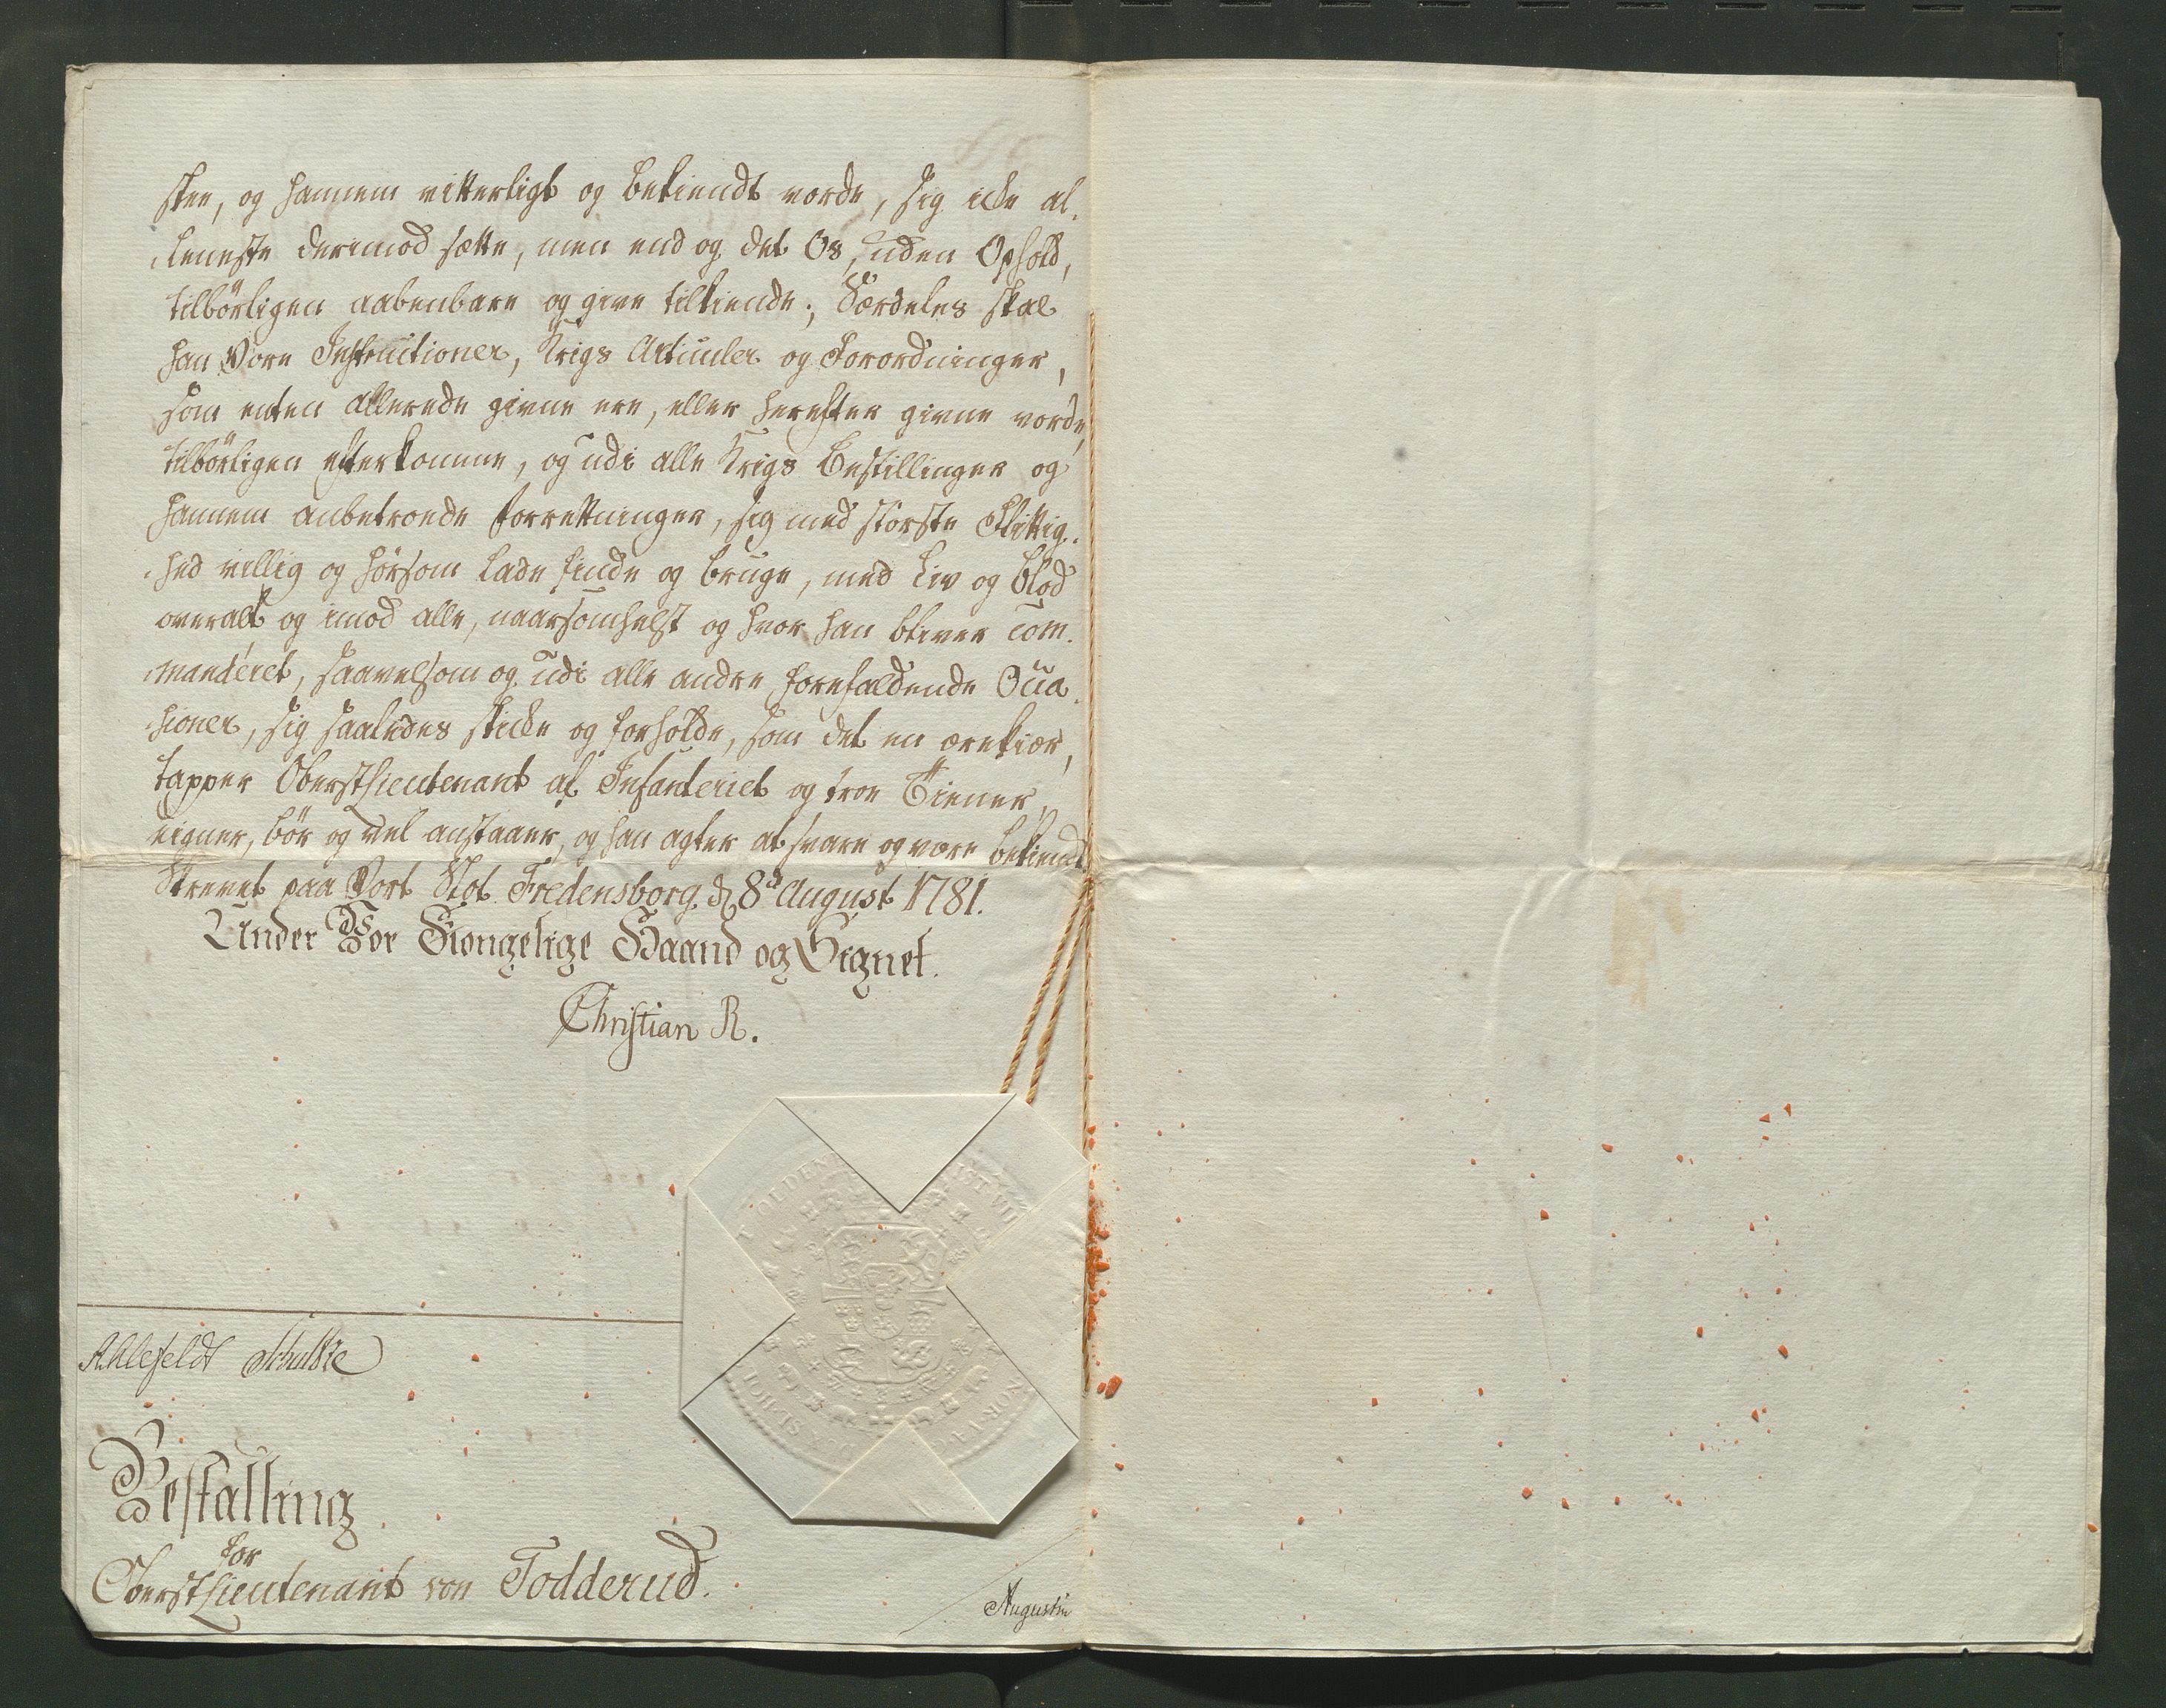 skee, og hannem vitterligt og bekiendt vorde, sig icke al-
leneste derimod sætte, men end og det Os, uden Ophold,
tilbörligen aabenbare og give tilkiende; Særdeles skal
han Vore Instructioner, Krigs Articuler og Forordninger,
som enten allerede givne ere, eller herefter givne vorde,
tilbörligen efterkomme, og udi alle Krigs Bestillinger og
hannem anbetroede forrettninger, sig med störste Flittig-
hed villig og hörsom lade finde og bruge, med Liv og Blod
overalt og imod alle, naarsomhelst og hvor han bliver com-
manderet, saavelsom og udi alle andre forefaldende Occa-
sioner, sig saaledes skicke og forholde, som det en ærekiær,
tapper Oberstlieutenant af Infanteriet og troe Tiener,
eigner, bör og vel anstaaer, og han agter at svare og være bekiendt.
Skrevet paa Vort Slot Fredensborg, d 8d August 1781.
Under Vor Kiongelige Haand og Signet.
Christian R.
OLDEN
NOR V G
SL HOL
Ahlefeldt Schultze
Bestalling
for
Oberstlieutenant von Todderud.
Augustin